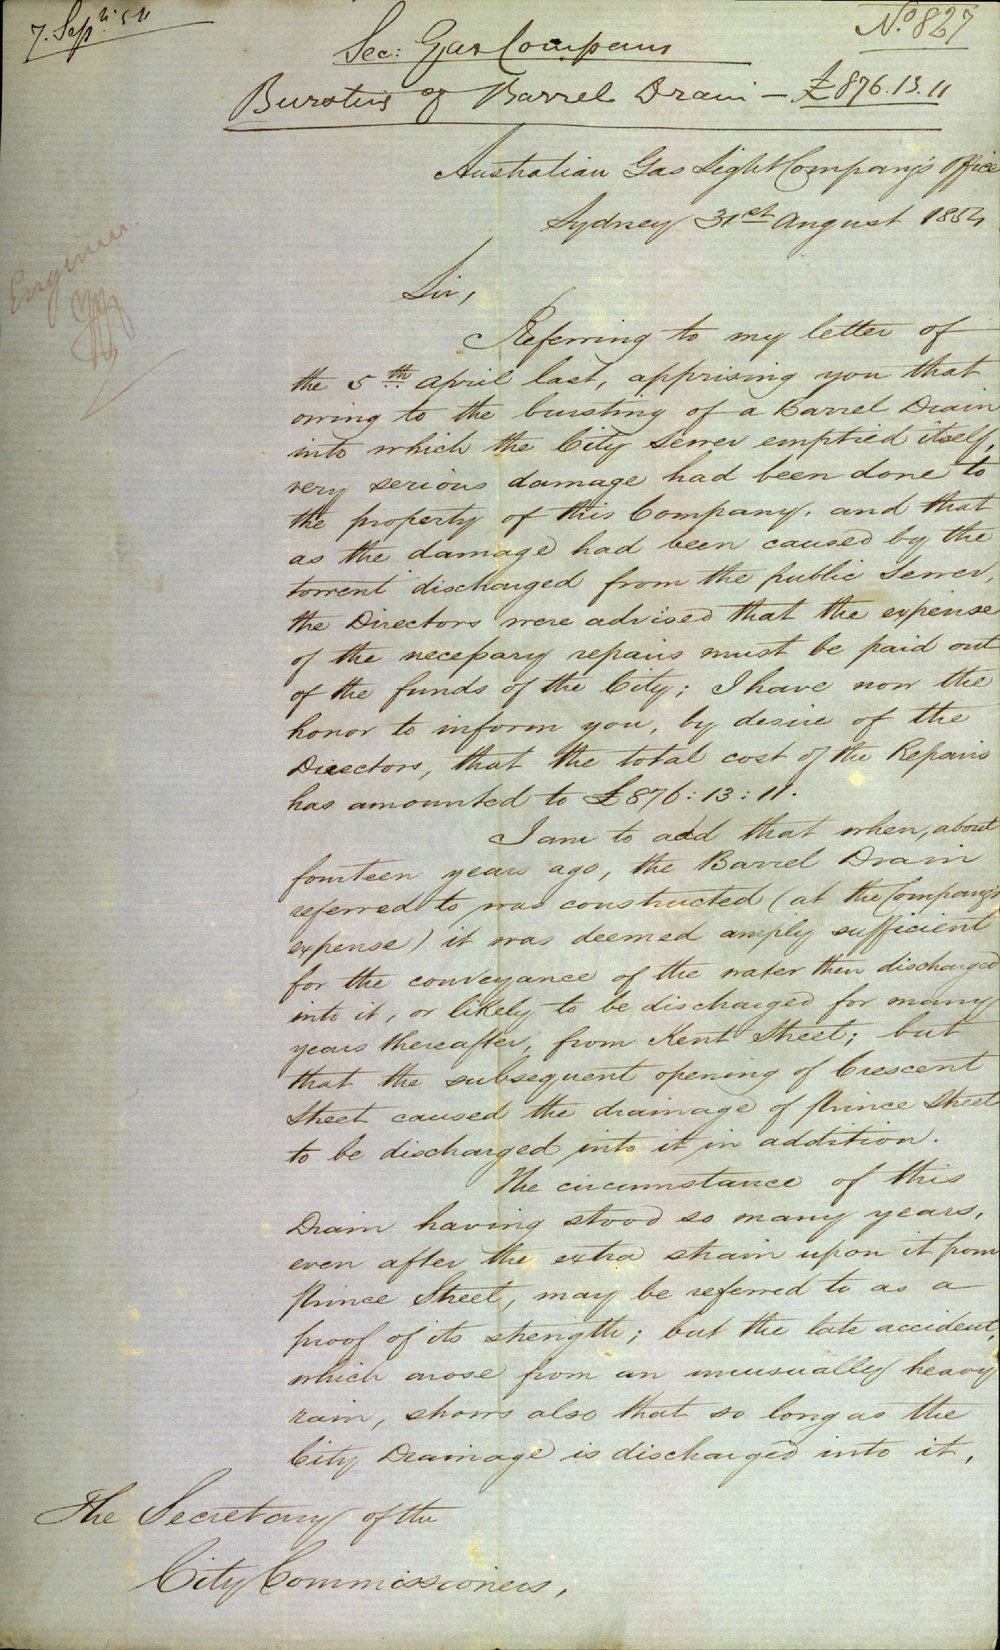 7. Sepr. 54
No. 827
Sec: Gas Company
Bursting of Barrel Drain — £876.13.11
Australian Gas Light Company's Office
Sydney 31st August 1854
Engineer
Sir,
Referring to my letter of
the 5th. April last, apprising you that
owing to the bursting of a Barrel Drain
into which the City Sewer emptied itself,
very serious damage had been done to
the property of this Company, and that
as the damage had been caused by the
torrent discharged from the public Sewer,
the Directors were advised that the expense
of the necessary repairs must be paid out
of the funds of the City; I have now the
honor to inform you, by desire of the
Directors, that the total cost of the Repairs
has amounted to £876:13:11.
I am to add that when, about
fourteen years ago, the Barrel Drain
referred to was constructed (at the Company's
expense) it was deemed amply sufficient
for the conveyance of the water then discharged
into it, or likely to be discharged for many
years thereafter, from Kent Street; but
that the subsequent opening of Crescent
Street caused the drainage of Prince Street
to be discharged into it in addition.
The circumstance of this
Drain having stood so many years,
even after the extra strain upon it from
Prince Street, may be referred to as a
proof of its strength; but the late accident,
which arose from an unusually heavy
rain, shows also that so long as the
City Drainage is discharged into it,
The Secretary of the
City Commissioners,